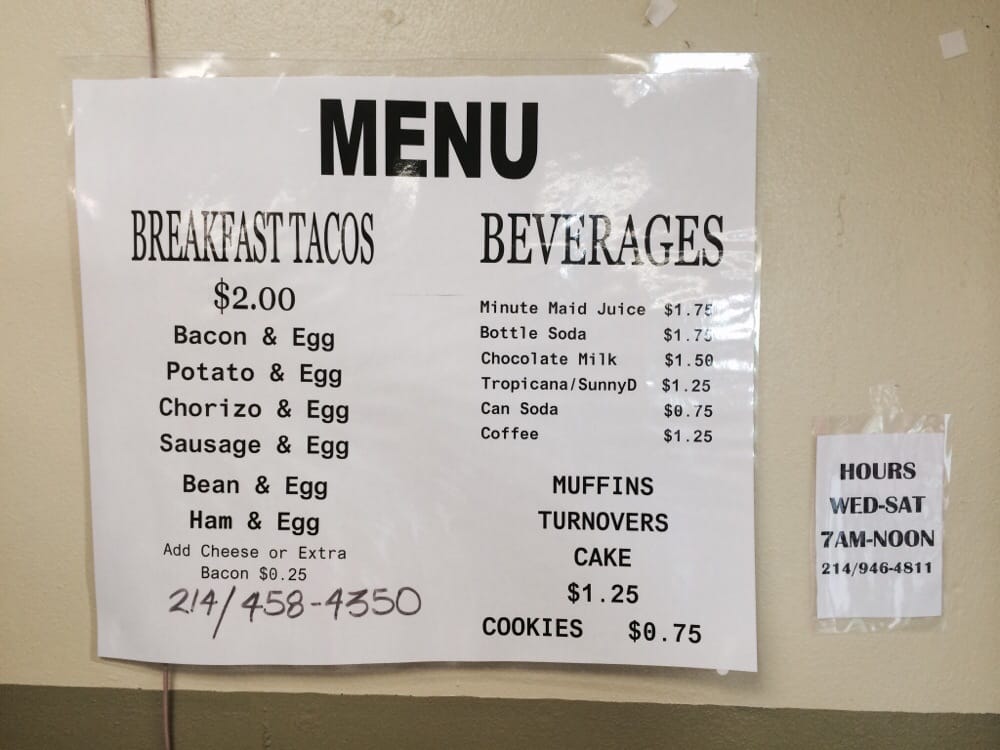 MENU
BREAKFAST TACOS
$2.00
Bacon & Egg
Potato & Egg
Chorizo & Egg
Sausage & Egg
Bean & Egg
Ham & Egg
Add Cheese or Extra
Bacon $0.25
214/458-4350
BEVERAGES
Minute Maid Juice $1.75
Bottle Soda $1.75
Chocolate Milk $1.50
Tropicana/SunnyD $1.25
Can Soda $0.75
Coffee $1.25
MUFFINS
TURNOVERS
CAKE
$1.25
COOKIES $0.75
HOURS
WED-SAT
7AM-NOON
214/946-4811